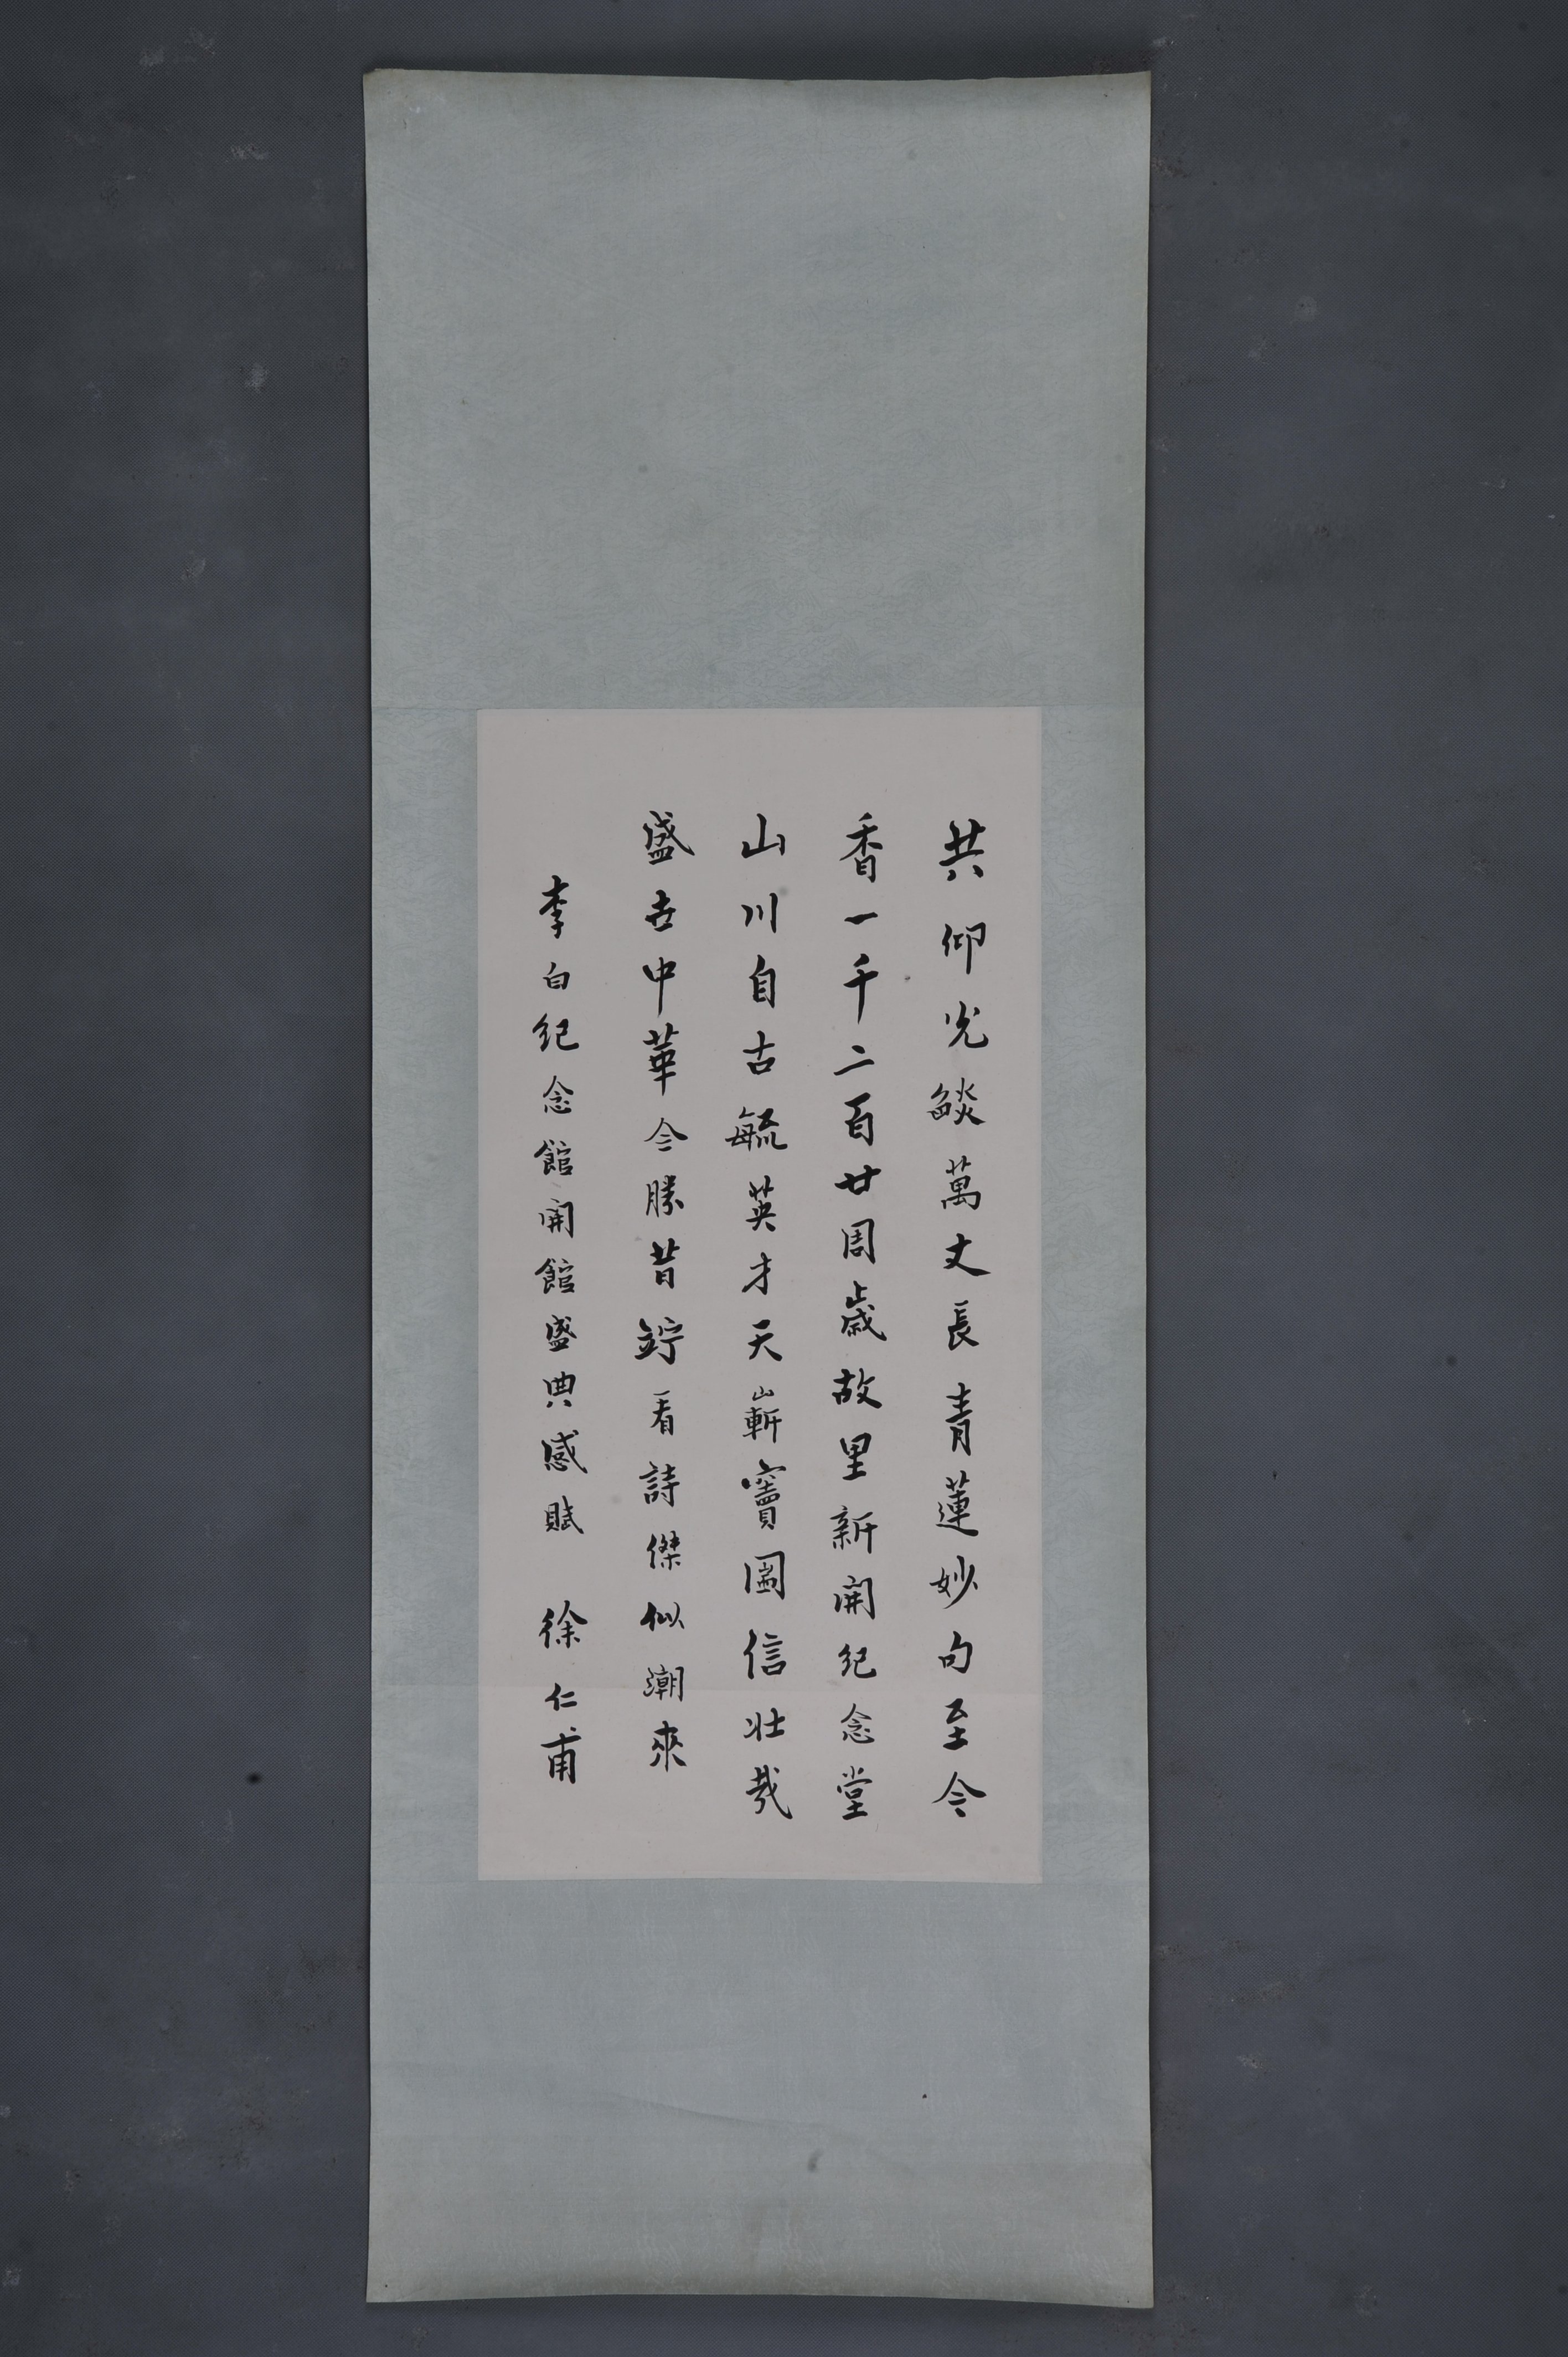 共仰光燄萬丈長青蓮妙句至今
香一千二百廿周歲故里新開紀念堂
山川自古毓英才天嶄竇圌信壯哉
盛世中華今勝昔竚看詩傑似潮來
李白紀念館開館盛典感賦 徐仁甫